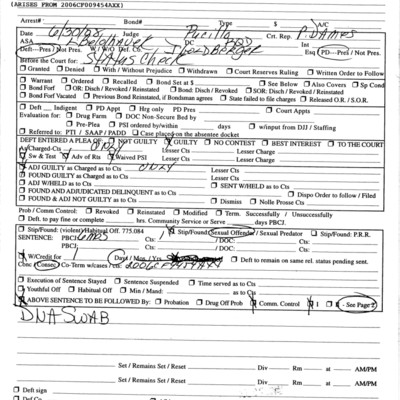 (ARISES FROM 2006CF009454AXX)
Arrest# Bond# Type $ A/C
Date 6/30/08 J: Pucillo Crt. Rep. P. DAMES
ASA I. Belohlavek DC PBD I. Goldberger
Deft--Pres / Not Pres. W / WO Def. Ct. Int Esq PD--Pres / Not Pres
Before the Court for: STATUS CHECK
☐ Granted ☐ Denied ☐ With / Without Prejudice ☐ Withdrawn ☐ Court Reserves Ruling ☐ Written Order to Follow
☐ Warrant ☐ Ordered ☐ Recalled ☐ Bond Set at $ ☐ See Below ☐ Also Covers ☐ Sp Cond
☐ Bond Forf ☐ OR: Disch / Revoked / Reinstated ☐ Bond: Disch / Revoked ☐ SOR: Disch / Revoked / Reinstated
☐ Bond Forf Vacated ☐ Previous Bond Reinstated, if Bondsman agrees ☐ State failed to file charges ☐ Released O.R. / S.O.R.
☐ Deft - Indigent ☐ PD Appt ☐ Hrg only ☐ PD Pres ☐ Court Appts
Evaluation for: ☐ Drug Farm ☐ DOC Non-Secure Bed by
☐ Pre-Plea ☐ PSI ordered by/within days ☐ w/input from DJJ / Staffing
☐ Referred to: PTI / SAAP / PADD ☐ Case placed on the absentee docket
DEFT ENTERED A PLEA OF ☐ NOT GUILTY ☐ GUILTY ☐ NO CONTEST ☐ BEST INTEREST ☐ TO THE COURT
As Charged-Cts Lesser Cts Lesser Charge
Sw & Test Adv of Rts Waived PSI Lesser Cts Lesser Charge
ADJ GUILTY as Charged as to Cts ONLY Lesser Cts
☐ FOUND GUILTY as Charged to Cts Lesser Cts
☐ ADJ W/HELD as to Cts ☐ SENT W/HELD as to Cts
☐ FOUND AND ADJUDICATED DELINQUENT as to Cts ☐ Dispo Order to follow / Filed
☐ FOUND & ADJ NOT GUILTY as to Cts ☐ Dismiss ☐ Nolle Prosse Cts
Prob / Comm Control: ☐ Revoked ☐ Reinstated ☐ Modified ☐ Term. Successfully / Unsuccessfully
☐ Deft. to pay fine or complete hrs. Community Service or Serve days PBCJ.
☐ Stip/Found: (violent) Habitual Off. 775.084 Stip/Found: Sexual Offender / Sexual Predator ☐ Stip/Found: P.R.R.
SENTENCE: PBC 6 MOS / Cts / DOC: / Cts:
PBCJ: / Cts: / DOC: / Cts:
W/Credit for 1 Days / Mos / Yrs ☐ Deft to remain on same rel. status pending sent.
Conc / Consec / Co-Term w/cases / cts: 2006CF9454AXX
☐ Execution of Sentence Stayed ☐ Sentence Suspended ☐ Time served as to Cts
☐ Youthful Off ☐ Habitual Off ☐ Min / Mand: as to Cts
ABOVE SENTENCE TO BE FOLLOWED BY: ☐ Probation ☐ Drug Off Prob Comm. Control I ☐ - See Page 2
DNA SWAB
Set / Remains Set / Reset Div Rm at AM/PM
Set / Remains Set / Reset Div Rm at AM/PM
Set / Remains Set / Reset Div Rm at AM/PM
☐ Deft sign